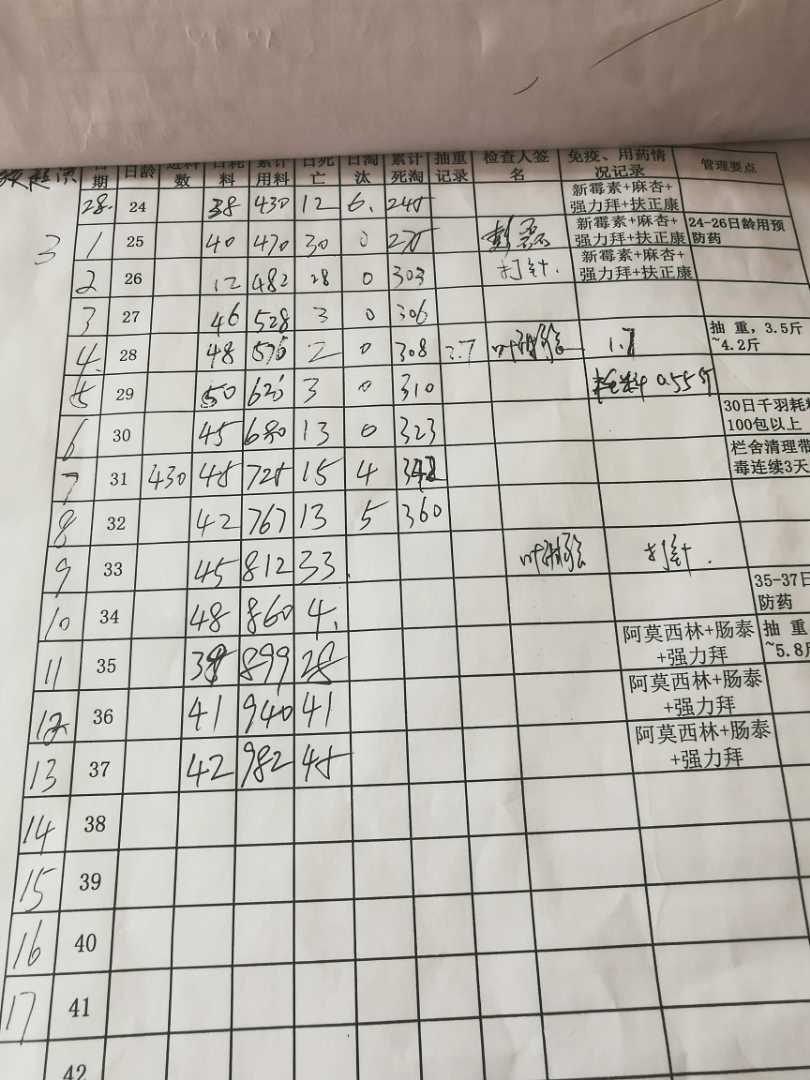 期 日龄 数 日耗料 累计用料 日死亡 日淘汰 累计死淘 抽重记录 检查人签名 免疫、用药情况记录 管理要点
28. 24 38 430 12 6. 245 新霉素+麻杏+强力拜+扶正康
3
1 25 40 470 30 0 275 新霉素+麻杏+强力拜+扶正康 24-26日龄用预防药
2 26 12 482 28 0 303 打针. 新霉素+麻杏+强力拜+扶正康
3 27 46 528 3 0 306
4. 28 48 576 2 0 308 1.7 抽 重，3.5斤~4.2斤
5 29 50 3 0 310 耗料 0.55斤
6 30 45 680 13 0 323 30日千羽耗料100包以上
7 31 430 45 725 15 4 栏舍清理带毒连续3天
8 32 42 767 13 5 360
9 33 45 812 33 打针.
10 34 48 860 4. 35-37日防药
11 35 899 28 阿莫西林+肠泰+强力拜 抽 重~5.8斤
12 36 41 940 41 阿莫西林+肠泰+强力拜
13 37 42 982 45 阿莫西林+肠泰+强力拜
14 38
15 39
16 40
17 41
42